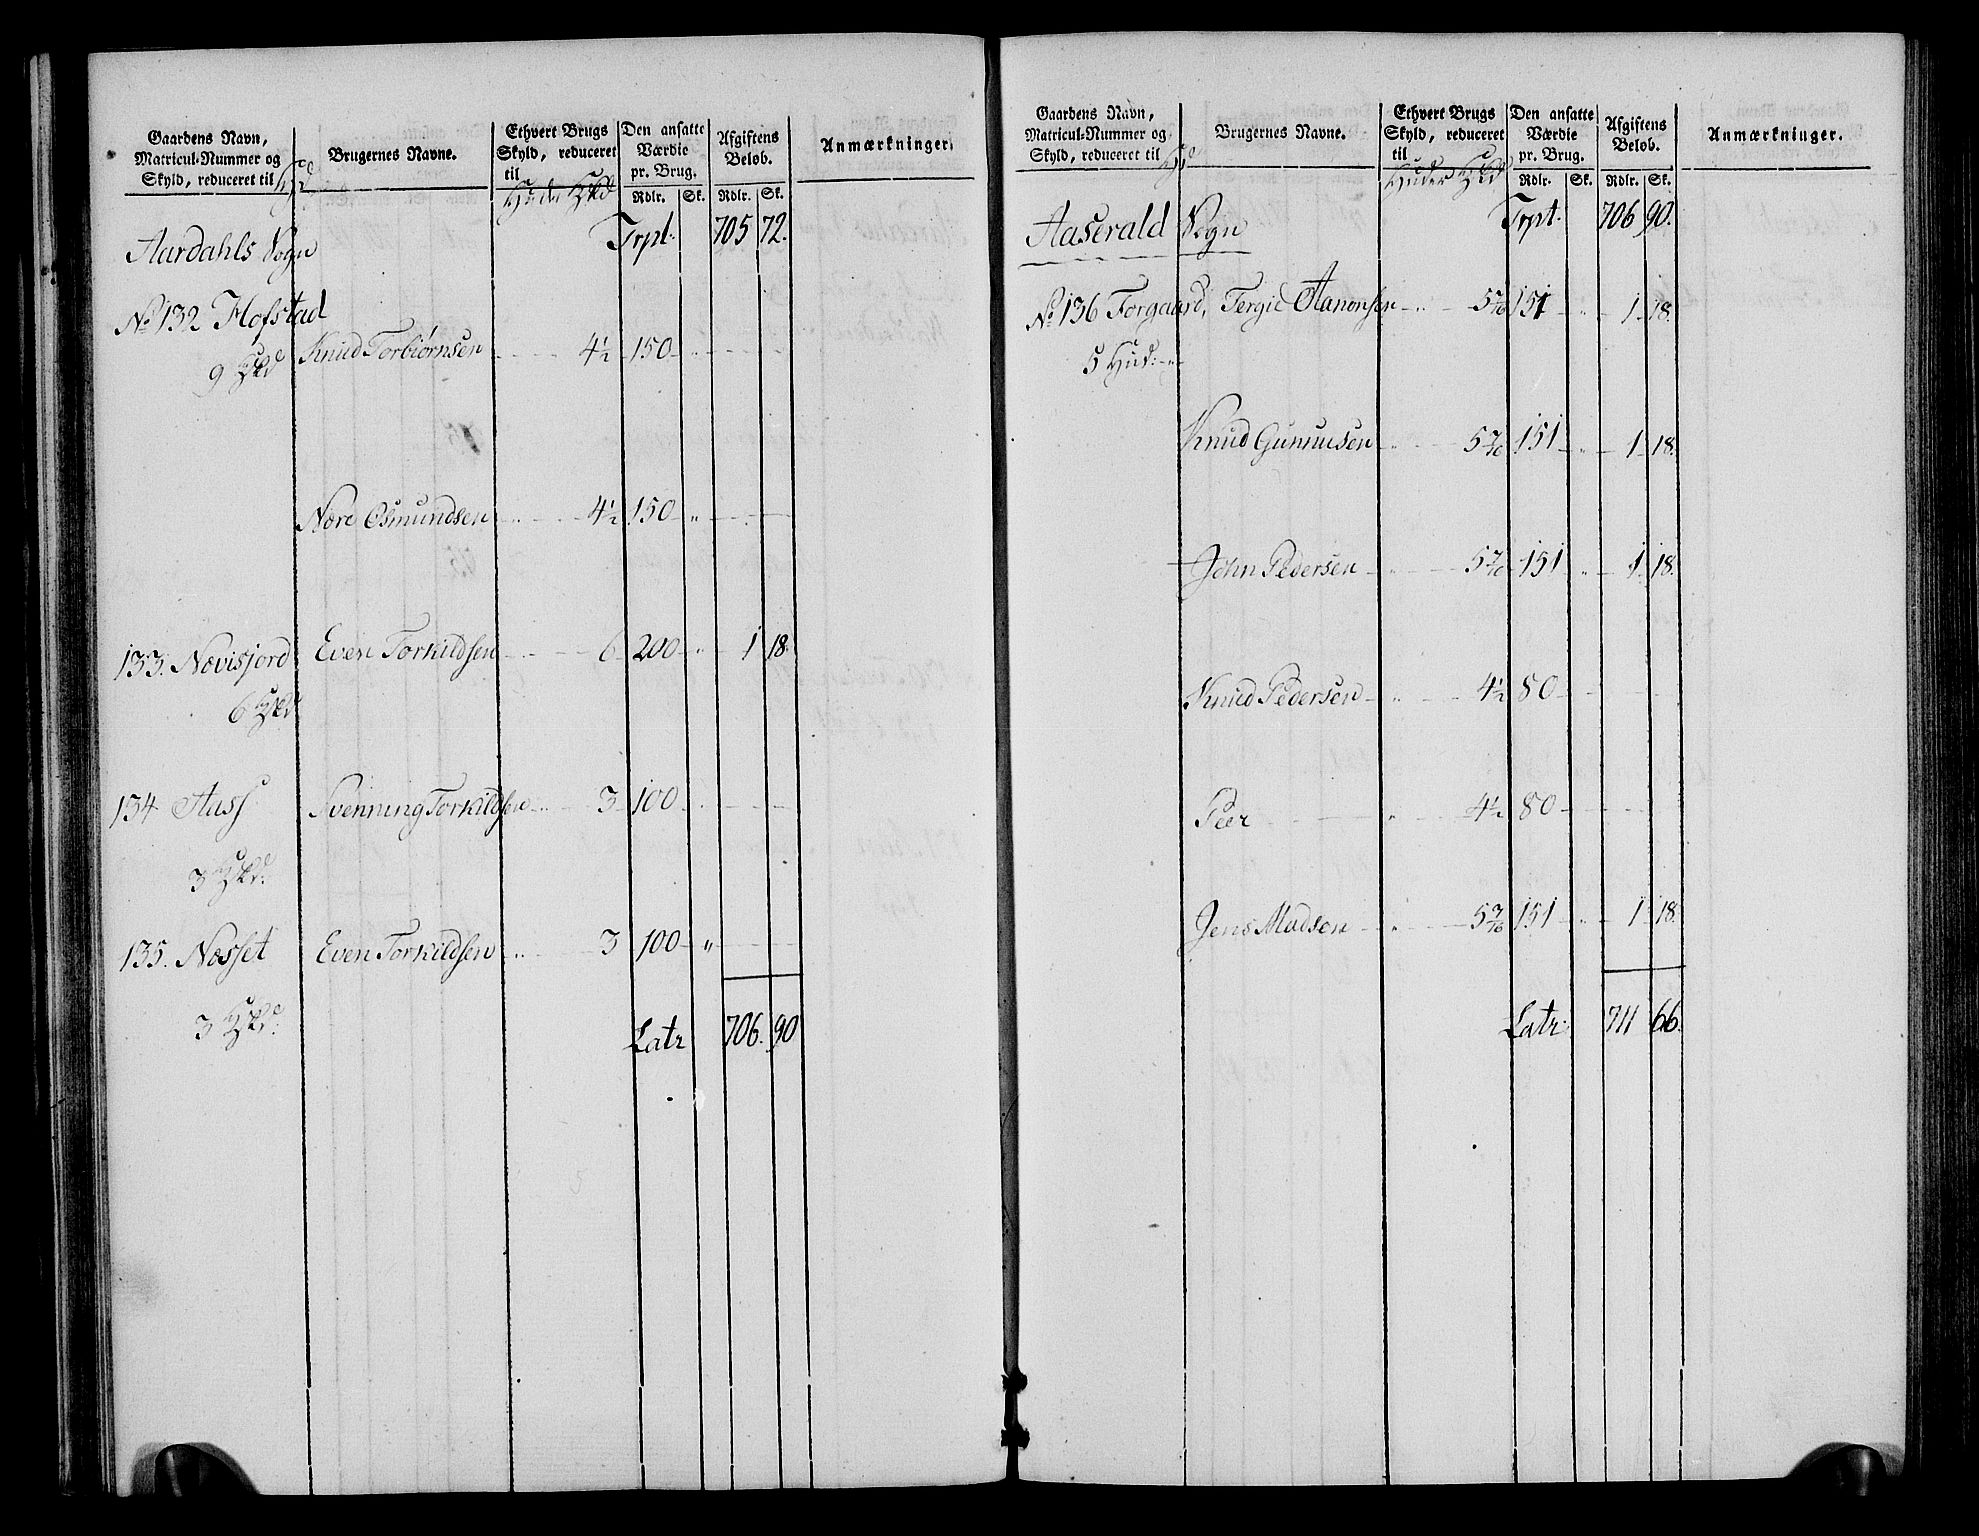 Gaardens Navn,
Matricul-Nummer og
Skyld, reduceret til
Brugernes Navne.
Ethvert Brugs
Skyld, reduceret
til
Huder
Den ansatte
Værdie
pr. Brug.
Rdlr. Sk.
Afgiftens
Beløb.
Rdlr. Sk.
Anmærkninger.
Aardahls Sogn Trpt: 705 72.
No 132 Hofstad
Knud Torbiørnsen 4½ 150
9
Nære Osmundsen 4½ 150
133. Nævisjord Even Torkildsen 6 200 1 18.
6
134 Aass Svenning Torkildsen 3 100
3
135. Næsset Even Torkildsen 3 100
3
Latr 706. 90
Gaardens Navn,
Matricul-Nummer og
Skyld, reduceret til
Brugernes Navne.
Ethvert Brugs
Skyld, reduceret
til
Huder
Den ansatte
Værdie
pr. Brug.
Rdlr. Sk.
Afgiftens
Beløb.
Rdlr. Sk.
Anmærkninger.
Aaserald Sogn Trpt. 706 90.
No 136 Forgaard, Tergie Aanonsen 151 1 18.
5 Hud:
Knud Gunnusen 151 1 18.
John Pedersen 151 1 18.
Knud Pedersen 4½ 80
Peer 4½ 80
Jens Madsen 151 1 18.
Latr: 711 66.